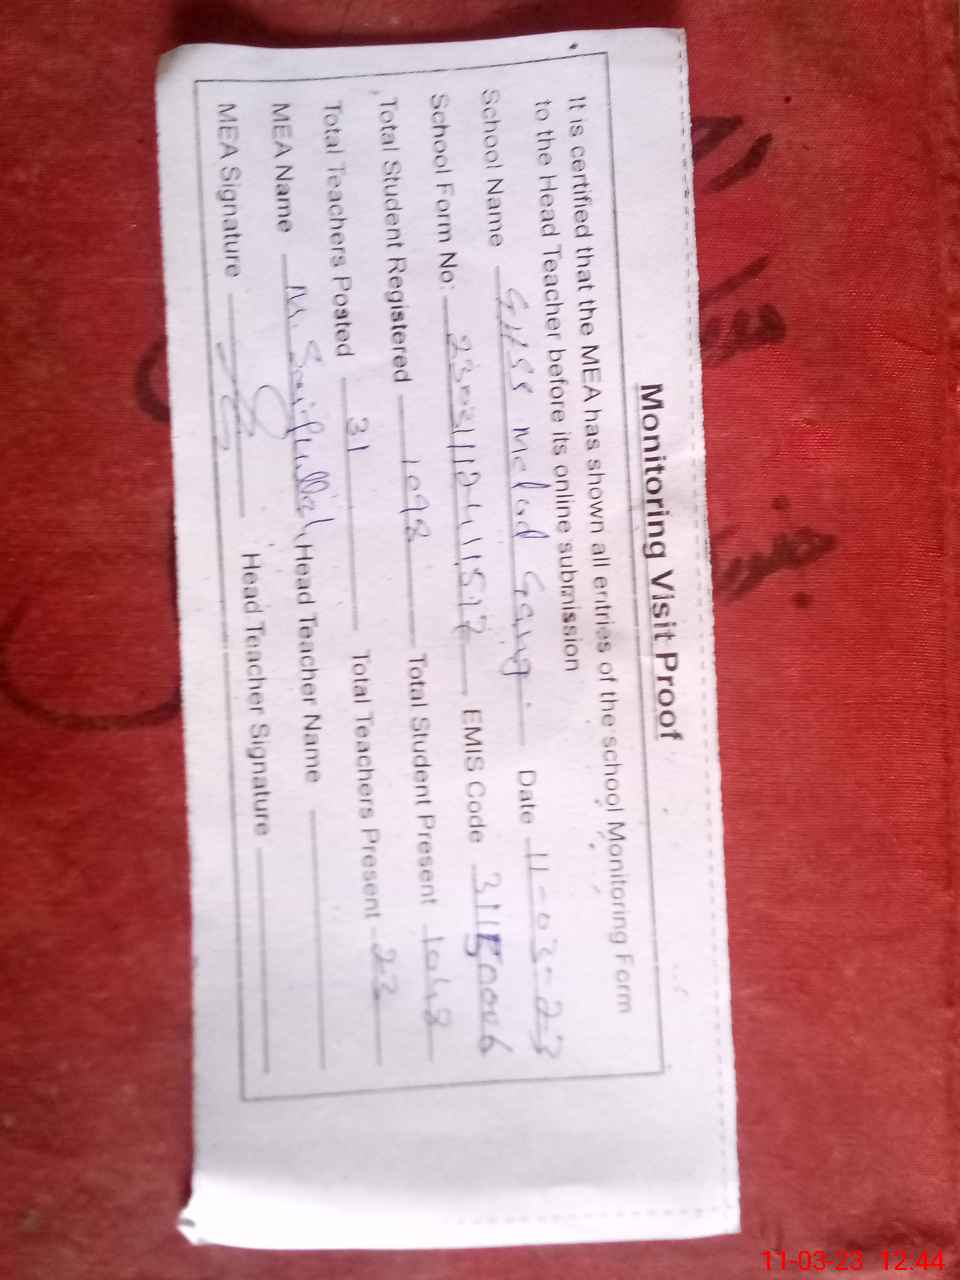 Monitoring Visit Proof
It is certified that the MEA has shown all entries of the school Monitoring Form
to the Head Teacher before its online submission
School Name GHSS Mclod Ganj Date 11-03-23
School Form No: EMIS Code 31150006
Total Student Registered 1098 Total Student Present 1048
Total Teachers Posted 31 Total Teachers Present 23
MEA Name M. Saifullah Head Teacher Name
MEA Signature Head Teacher Signature
11-03-23 12:44